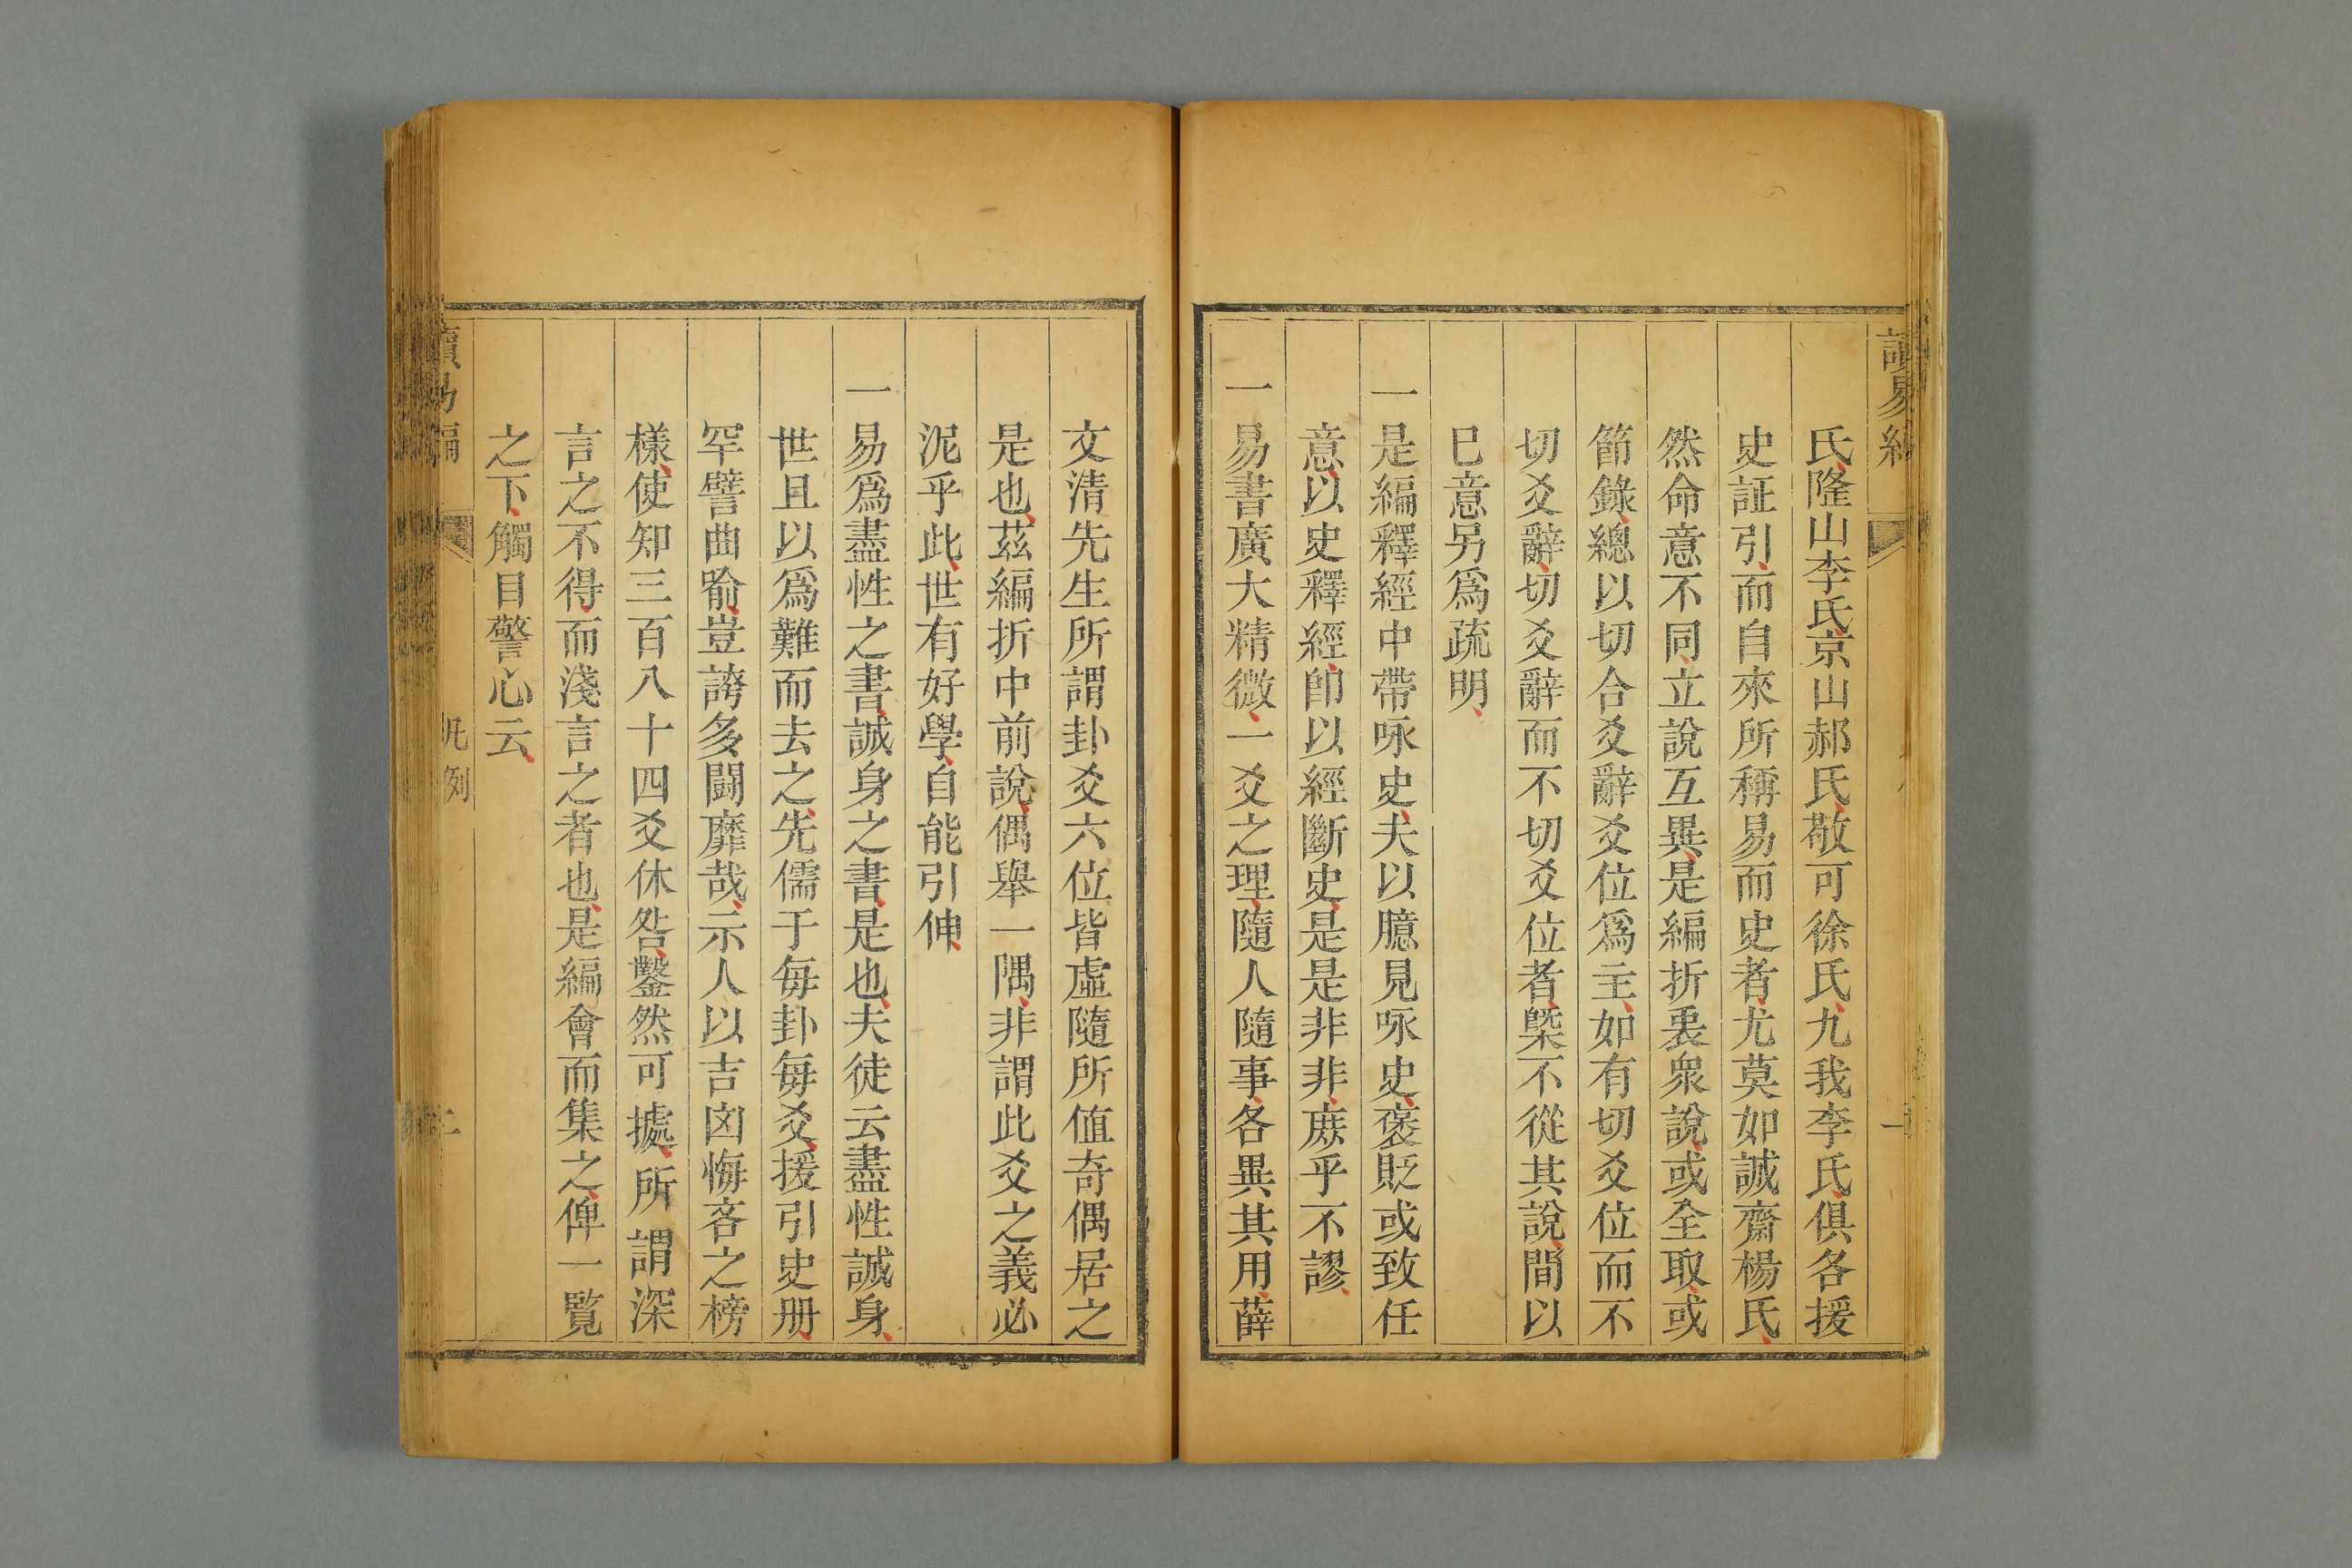 讀易編
氏、隆山李氏、京山郝氏、敬可徐氏、九我李氏、俱各援
史証引、而自來所稱易而史者、尤莫如誠齋楊氏、
然命意不同、立說互異、是編折衷衆說、或全取、或
節錄、總以切合爻辭爻位爲主、如有切爻位而不
切爻辭、切爻辭而不切爻位者、槩不從其說、間以
巳意另爲疏明、
一是編釋經中帶咏史、夫以臆見咏史、褒貶或致任
意、以史釋經、卽以經斷史、是是非非、庶乎不謬、
一易書廣大精微、一爻之理、隨人隨事、各異其用、薛
文清先生所謂卦爻六位皆虛隨所值奇偶居之
是也、茲編折中前說、偶舉一隅、非謂此爻之義必
泥乎此、世有好學、自能引伸、
一易爲盡性之書、誠身之書、是也、夫徒云盡性誠身、
世且以爲難而去之、先儒于每卦每爻、援引史册、
罕譬曲喻、豈誇多鬪靡哉、示人以吉凶悔吝之榜
樣、使知三百八十四爻休咎、鑿然可據、所謂深
言之不得、而淺言之者也、是編會而集之、俾一覧
之下、觸目警心云、
凡例
二